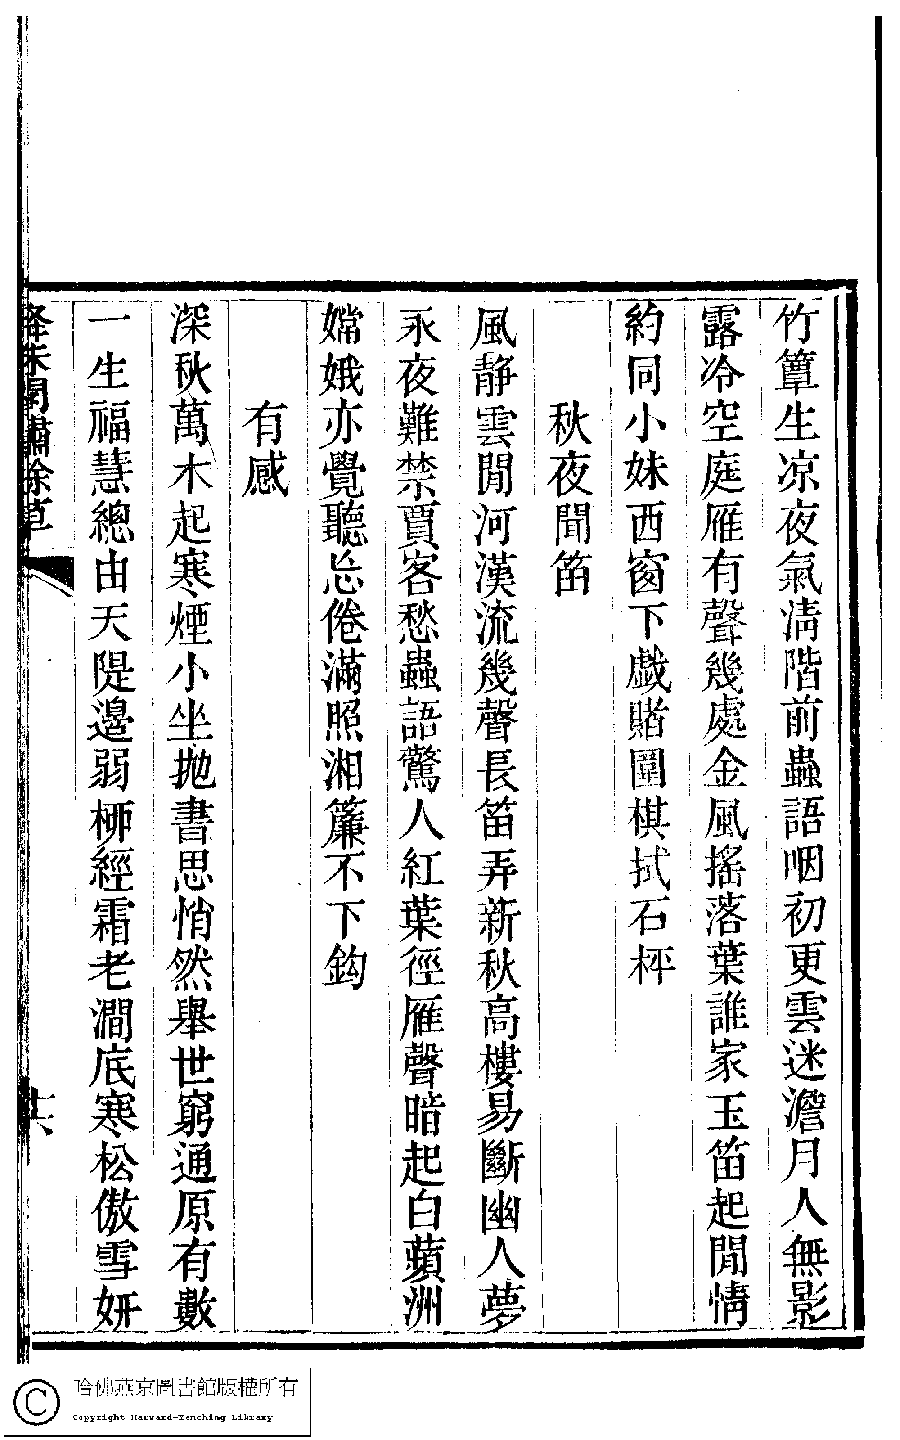 竹簟生凉夜氣清階前蟲語咽初更雲迷澹月人無影
露冷空庭雁有聲幾處金風搖落葉誰家玉笛起閒情
約同小妹西窗下戱賭圍棋拭石枰
秋夜聞笛
風静雲閒河漢流幾聲長笛弄新秋高樓易斷幽人夢
永夜難禁賈客愁蟲語驚人紅葉徑雁聲暗起白蘋洲
嫦娥亦覺聽忘倦滿照湘簾不下鈎
有感
深秋萬木起寒煙小坐抛書思悄然舉世窮通原有數
一生福慧總由天隄邊弱柳經霜老澗底寒松傲雪妍
絳珠閣繡餘草
十六
哈佛燕京圖書館版權所有
Copyright Harvard-Yenching Library